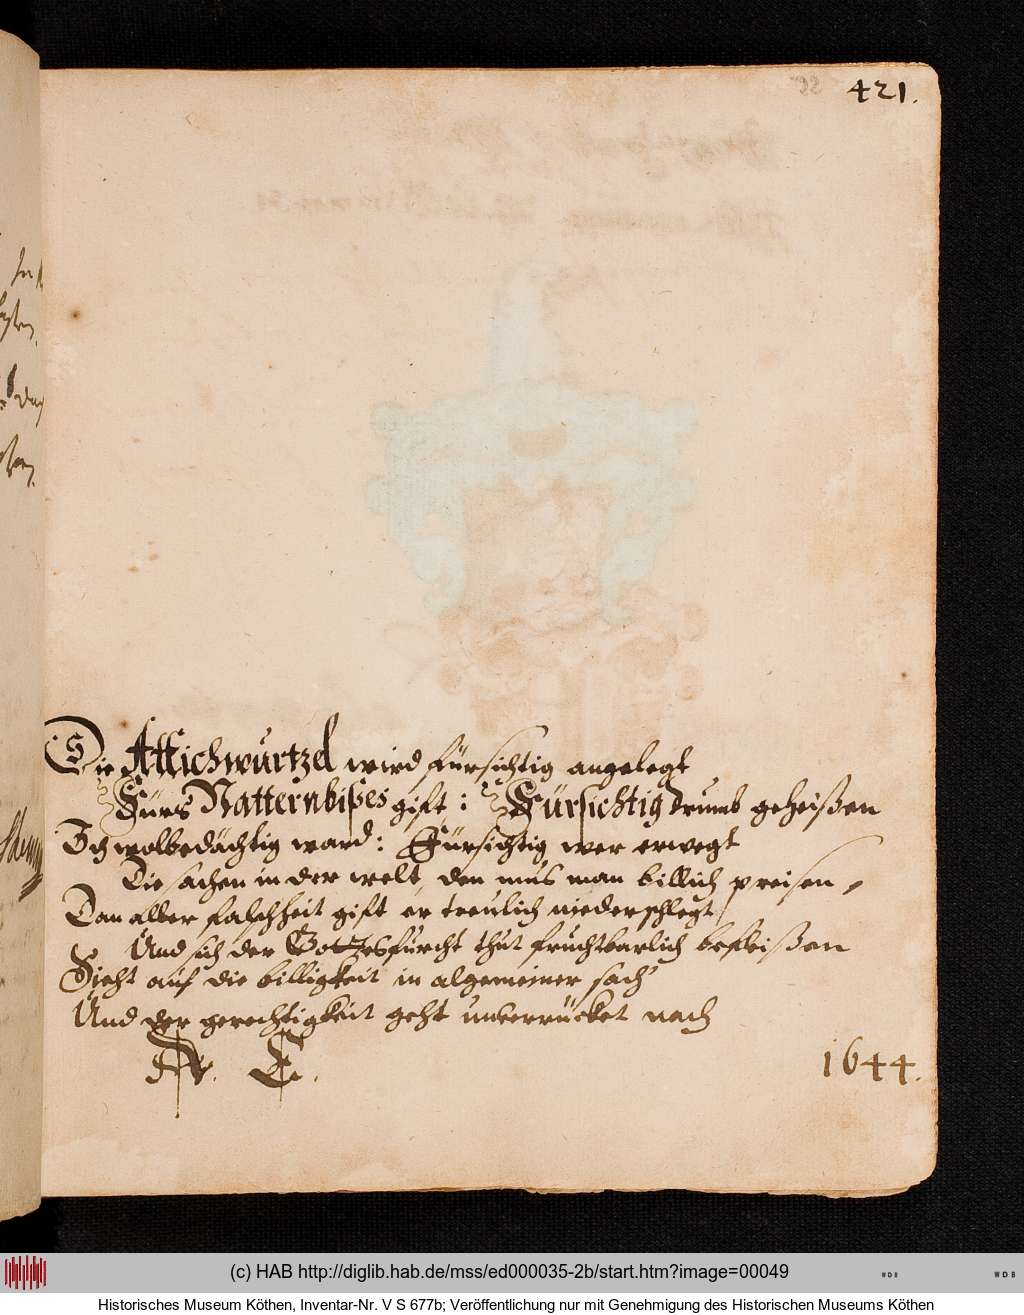 421.
Die Attichwurtzel wird fürsichtig angelegt
Fürs Natternbißes gift: Fürsichtig drumb geheißen
Ich wolbedächtig ward: Fürsichtig wer erwegt
Die sachen in der welt, den mus man billich preisen,
Dan aller falschheit gift er treulich niederschlegt
Und sich der Gottesfurcht thut fruchtbarlich befleißen
Sieht auf die billigkeit in algemeiner sach'
Und der gerechtigkeit geht unverrücket nach
1644.
(c) HAB http://diglib.hab.de/mss/ed000035-2b/start.htm?image=00049
Historisches Museum Köthen, Inventar-Nr. V S 677b; Veröffentlichung nur mit Genehmigung des Historischen Museums Köthen